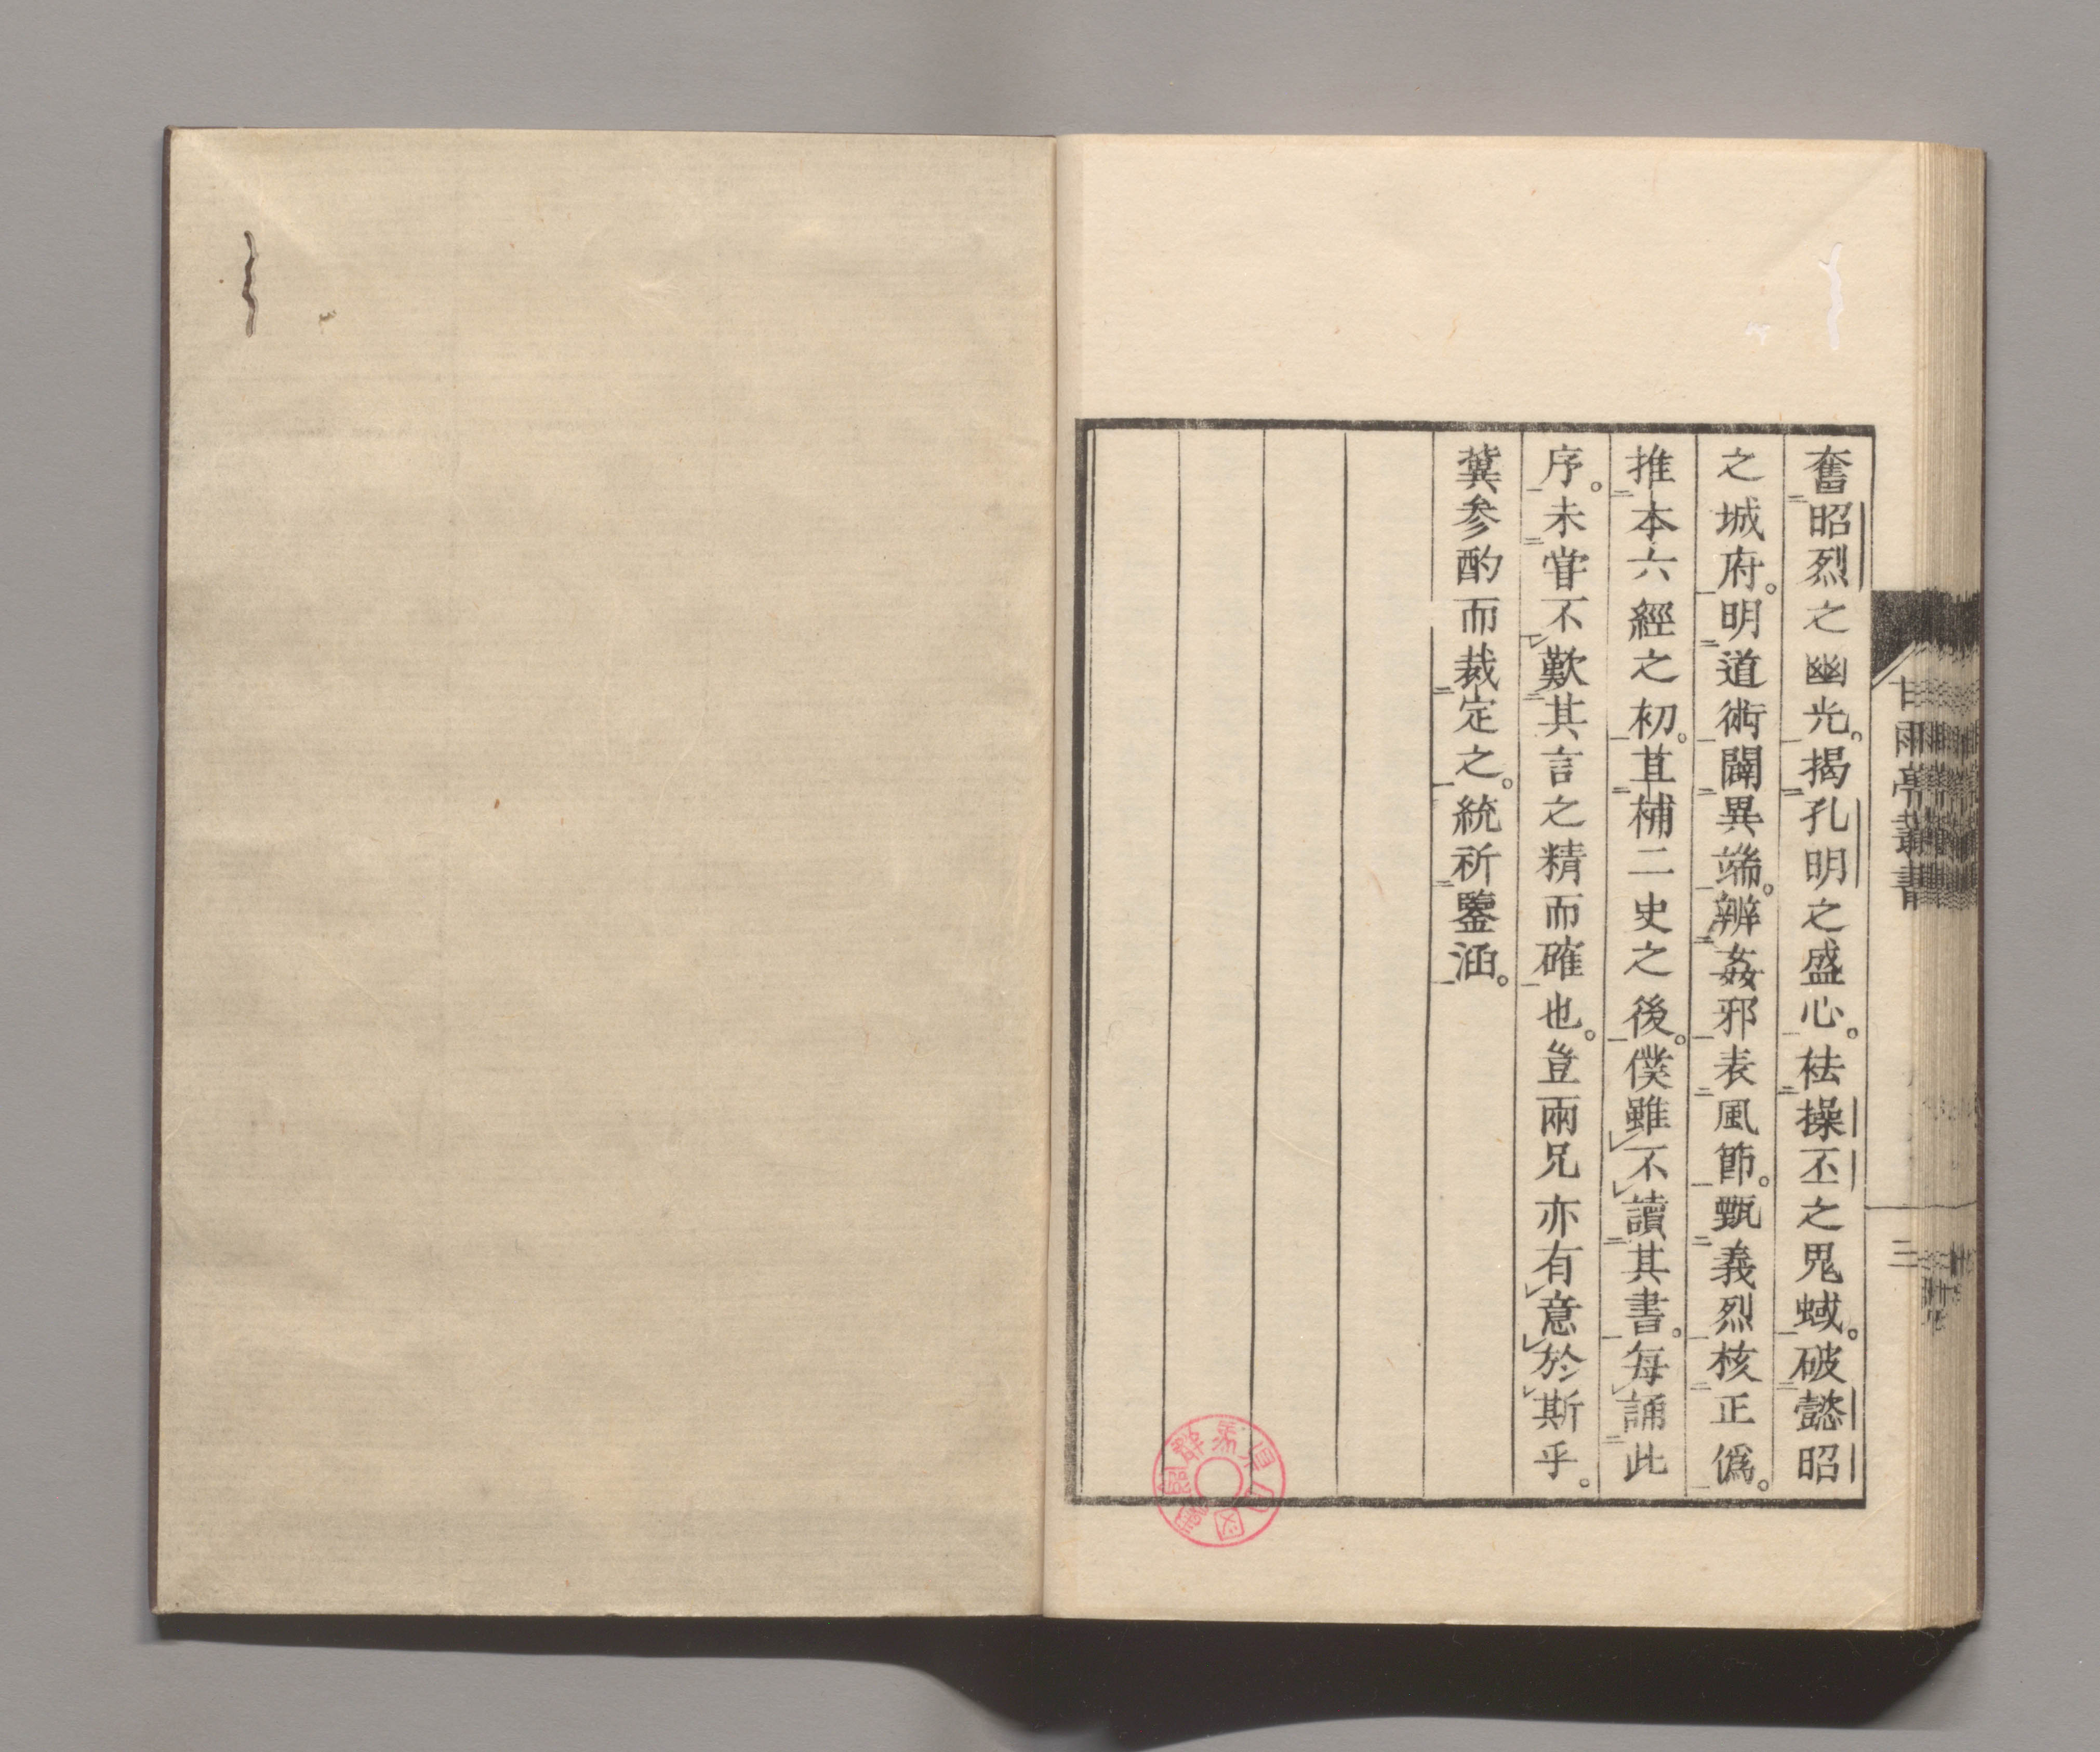 奮昭烈之幽光。揭孔明之盛心。祛操丕之鬼蜮。破懿昭
之城府。明道術闢異端。辨姦邪表風節。甄義烈核正僞。
推本六經之初。苴補二史之後。僕雖不讀其書。每誦此
序。未甞不歎其言之精而確也。豈兩兄亦有意於斯乎。
冀參酌而裁定之。統祈鑒涵。
甘雨亭叢書
三